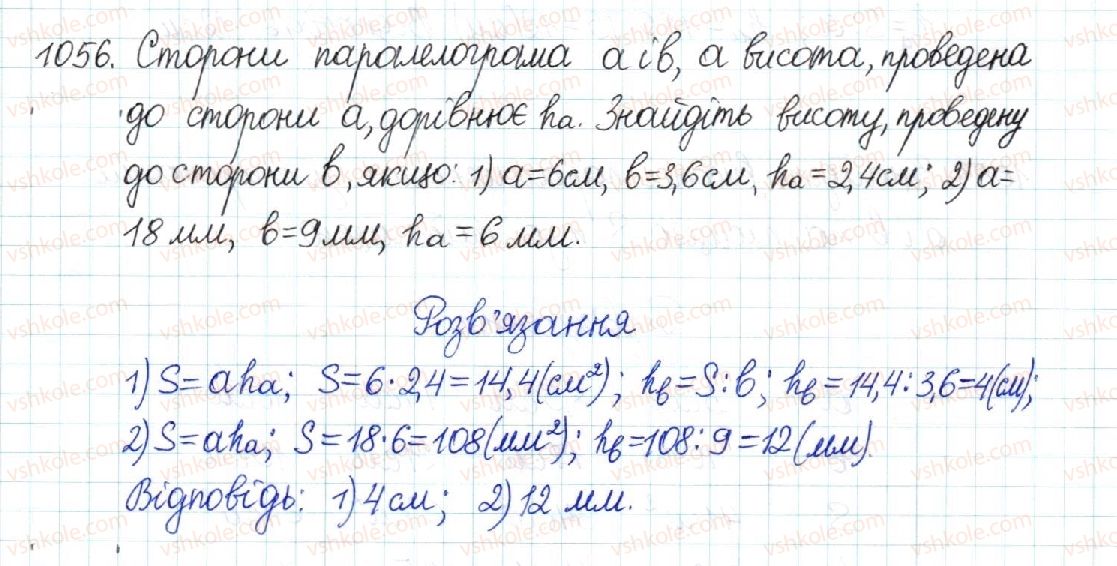 1056. Сторони паралелограма a і b, а висота, проведена
до сторони a, дорівнює hₐ. Знайдіть висоту, проведену
до сторони b, якщо: 1) a=6см, b=3,6см, hₐ=2,4см; 2) a=
18 мм, b=9мм, hₐ=6 мм.
Розв'язання
1) S=ahₐ; S=6·2,4=14,4(см²); h_b=S:b; h_b=14,4:3,6=4(см);
2) S=ahₐ; S=18·6=108(мм²); h_b=108:9=12(мм).
Відповідь: 1) 4 см; 2) 12 мм.